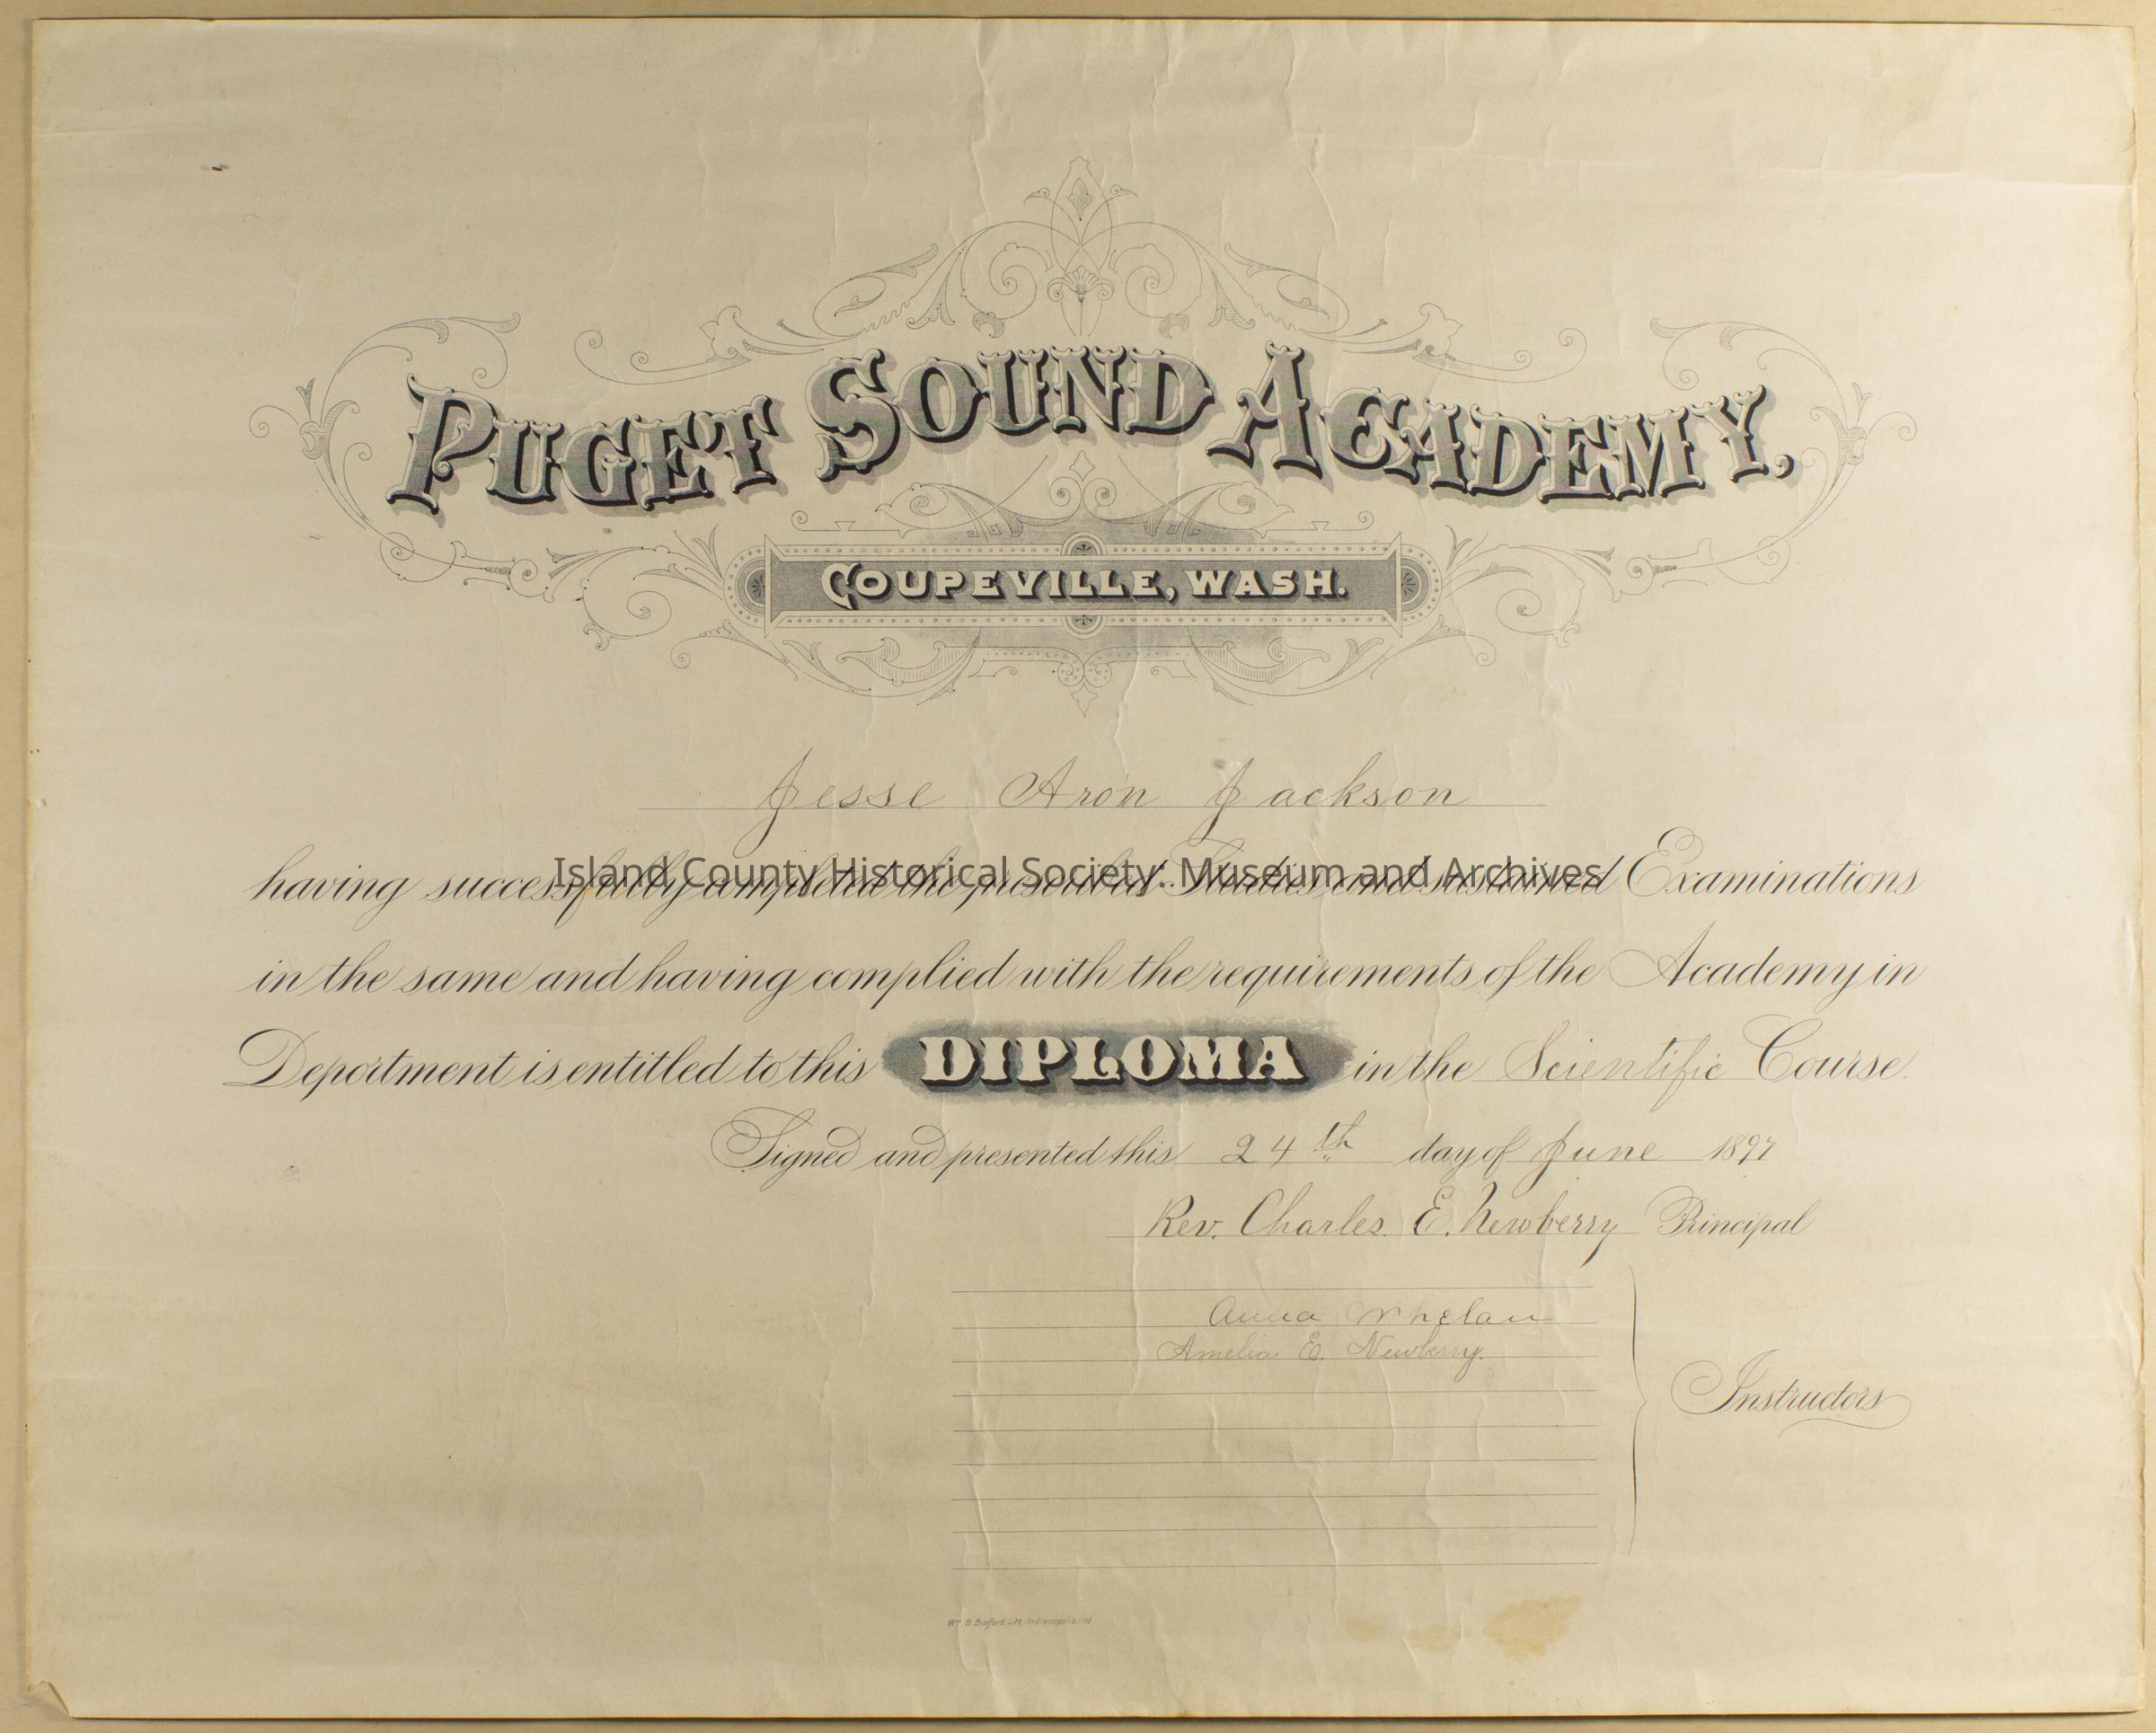 PUGET SOUND ACADEMY,
COUPEVILLE, WASH.
Jesse Aron Jackson
having successfully completed the prescribed Studies and sustained Examinations
Island County Historical Society. Museum and Archives
in the same and having complied with the requirements of the Academy in
Deportment is entitled to this DIPLOMA in the Scientific Course.
Signed and presented this 24th day of June 1897
Rev. Charles E. Newberry Principal
Anna Whelan
Amelia E. Newberry.
Instructors
Wm. B. Burford, Lith. Indianapolis Ind.